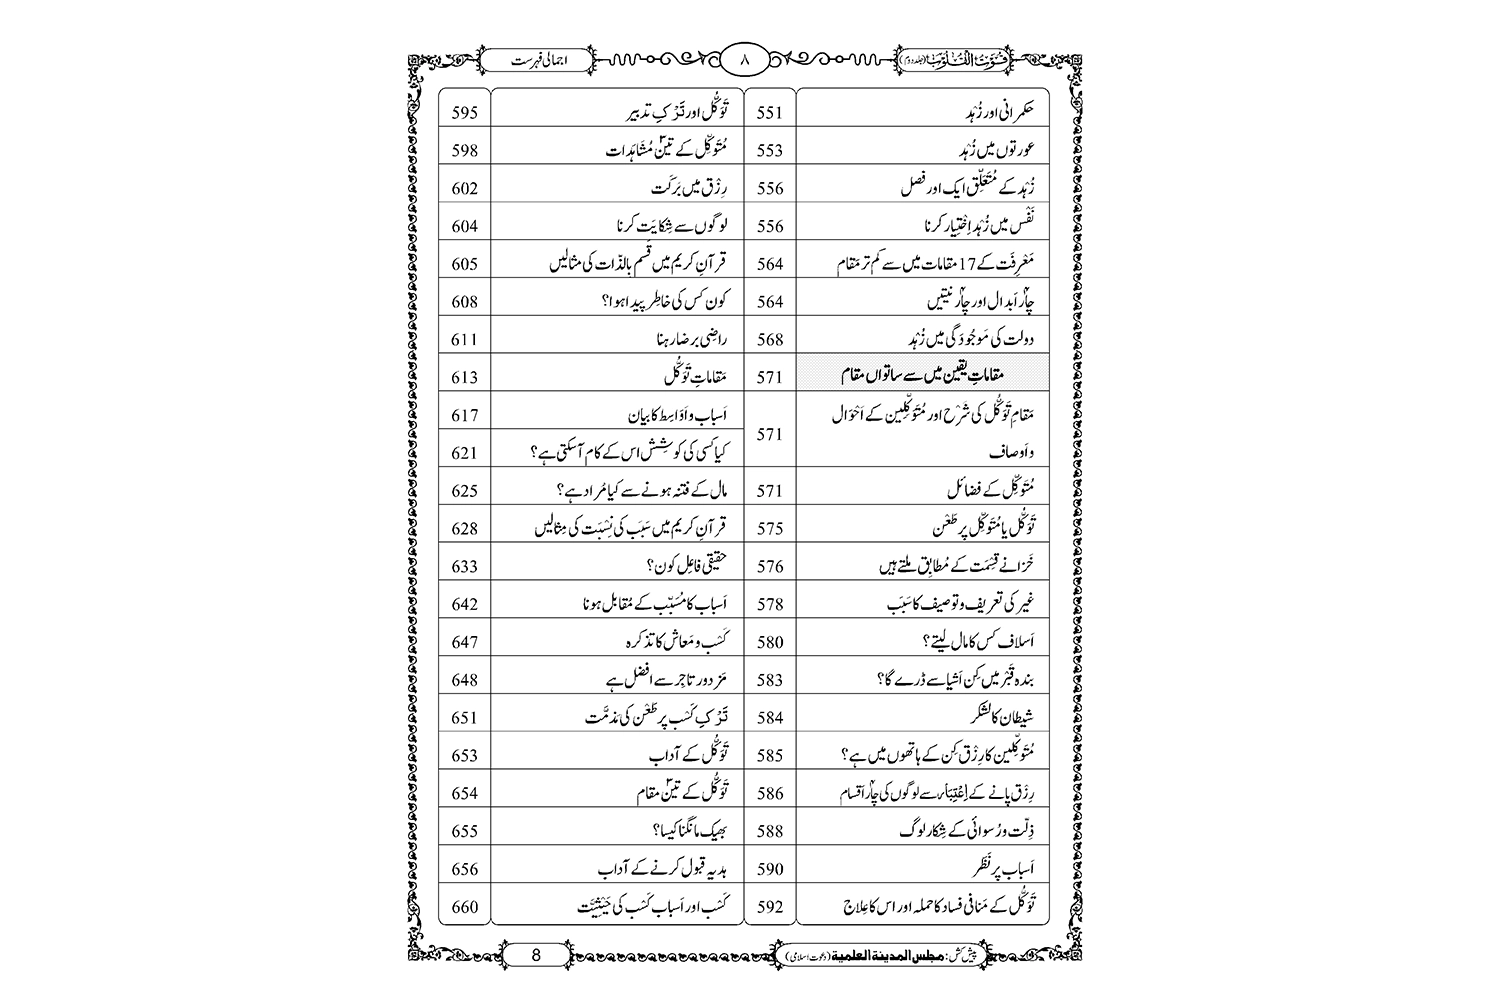 قُوْتُ الْقُلُوْب (جلد دوم)
۸
اجمالی فہرست
حکمرانی اور زُہْد 551
عورتوں میں زُہْد 553
زُہْد کے مُتَعَلِّق ایک اور فصل 556
نَفْس میں زُہْد اِخْتِیار کرنا 556
مَعْرِفَت کے 17 مقامات میں سے کم تر مَقام 564
چار۴ اَبدال اور چار۴ نیتیں 564
دولت کی مَوجُودَگی میں زُہْد 568
مقاماتِ یقین میں سے ساتواں مقام 571
مَقامِ تَوَکُّل کی شَرْح اور مُتَوَکِّلین کے اَحْوَال
و اَوصاف 571
مُتَوَکِّل کے فضائل 571
تَوَکُّل یا مُتَوَکِّل پر طَعْن 575
خَزانے قِسْمَت کے مُطابِق ملتے ہیں 576
غیر کی تعریف و توصیف کا سَبَب 578
اَسلاف کس کا مال لیتے؟ 580
بندہ قَبْر میں کِن اَشیا سے ڈرے گا؟ 583
شیطان کا لشکر 584
مُتَوَکِّلین کا رِزْق کِن کے ہاتھوں میں ہے؟ 585
رِزْق پانے کے اِعْتِبَار سے لوگوں کی چار۴ اَقسام 586
ذِلّت و رُسوائی کے شِکار لوگ 588
اَسباب پر نَظَر 590
تَوَکُّل کے مَنافی فساد کا حملہ اور اس کا عِلاج 592
تَوَکُّل اور تَرْکِ تدبیر 595
مُتَوَکِّل کے تین۳ مُشَاہَدات 598
رِزْق میں بَرَکَت 602
لوگوں سے شِکایَت کرنا 604
قرآنِ کریم میں قَسَم بالذّات کی مثالیں 605
کون کس کی خاطِر پیدا ہوا؟ 608
راضِی برضا رہنا 611
مَقاماتِ تَوَکُّل 613
اَسباب و اَوَاسِط کا بیان 617
کیا کسی کی کوشِش اس کے کام آسکتی ہے؟ 621
مال کے فتنہ ہونے سے کیا مُراد ہے؟ 625
قرآنِ کریم میں سَبَب کی نِسْبَت کی مِثالیں 628
حقیقی فاعِل کون؟ 633
اَسباب کا مُسَبِّب کے مُقابل ہونا 642
کَسْب و مَعاش کا تذکرہ 647
مَزدور تاجِر سے افضل ہے 648
تَرْکِ کَسْب پر طَعْن کی مَذمَّت 651
تَوَکُّل کے آداب 653
تَوَکُّل کے تین۳ مقام 654
بھیک مانگنا کیسا؟ 655
ہدیہ قبول کرنے کے آداب 656
کَسْب اور اَسبابِ کَسْب کی حَیْثِیَّت 660
پیش کش: مجلس المدینۃ العلمیۃ (دعوت اسلامی)
8